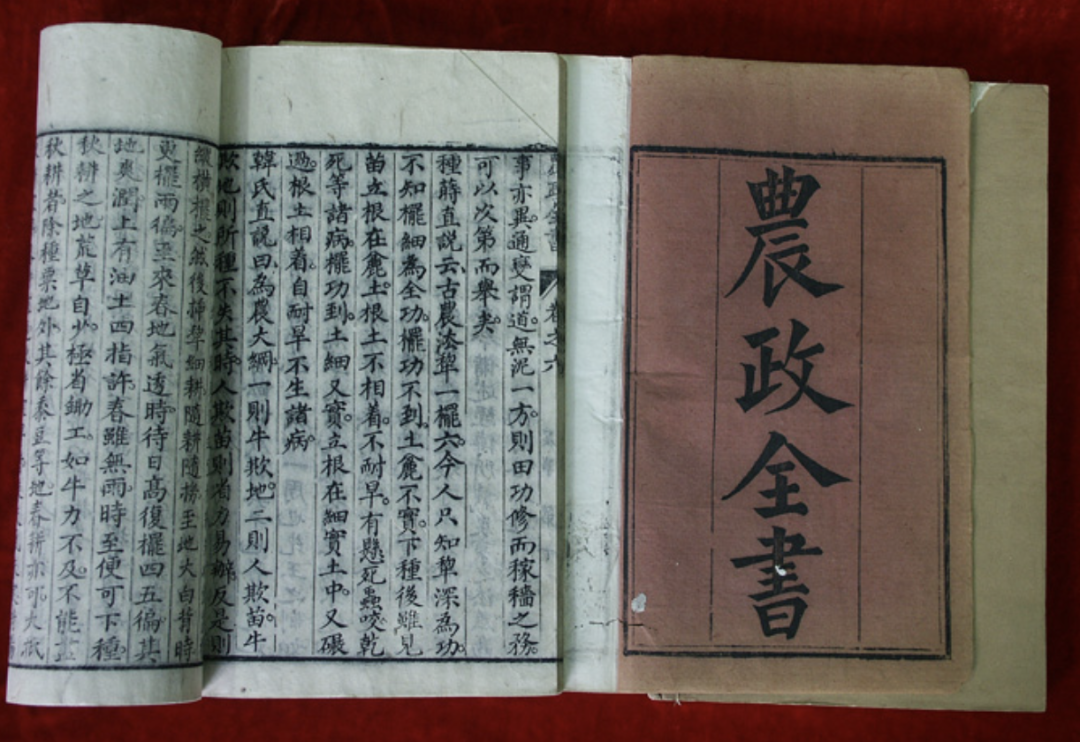 農政全書
政全書 卷之六
事亦異。通變謂道。無泥一方。則田功修而稼穡之務。
可以次第而舉矣。
種蒔直說云古農法犂一擺六。今人只知犂深為功。
不知擺細為全功。擺功不到。土麄不實。下種後雖見
苗立根在麄土。根土不相着。不耐旱。有懸死蟲咬乾
死等諸病。擺功到。土細又實。立根在細實土中。又碾
過。根土相着。自耐旱不生諸病。
韓氏直說曰為農大綱。一則牛欺地。二則人欺苗。牛
欺地則所種不失其時。人欺苗則省力易辦。反是則
縱橫擺之。然後挿犂細耕。隨耕隨擺。至地大白背時
更擺兩徧。至來春地氣透時。待日高復擺四五徧。其
地爽潤。上有油土四指許。春雖無雨。時至便可下種。
秋耕之地。荒草自少。極省鋤工。如牛力不及。不能盡
秋耕者除種粟地外。其餘黍豆等地。春耕亦可。大抵